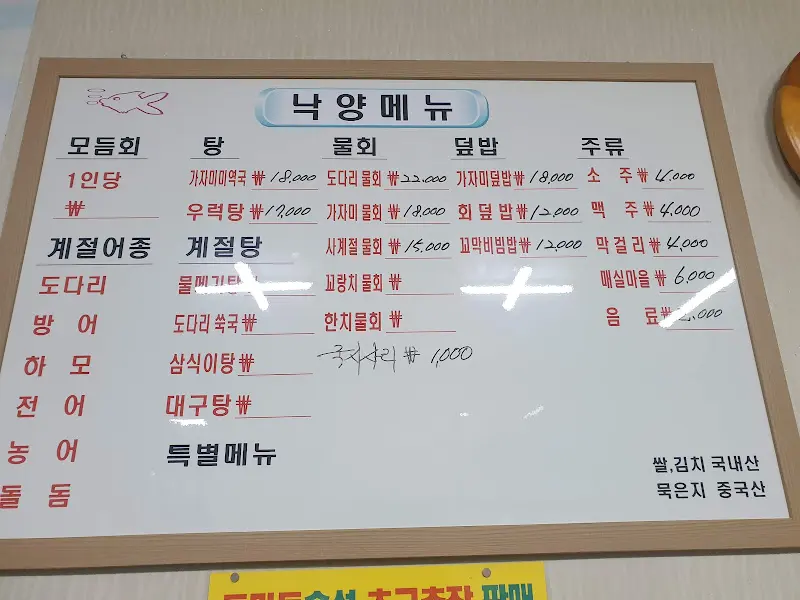 낙양메뉴
모듬회
1인당
₩
계절어종
도다리
방 어
하 모
전 어
농 어
돌 돔
탕
가자미미역국 ₩ 18,000
우럭탕 ₩ 17,000
계절탕
물메기탕 ₩
도다리 쑥국 ₩
삼식이탕 ₩
대구탕 ₩
특별메뉴
물회
도다리 물회 ₩ 22,000
가자미 물회 ₩ 18,000
사계절 물회 ₩ 15,000
꼬랑치 물회 ₩
한치물회 ₩
국수사리 ₩ 1,000
덮밥
가자미덮밥 ₩ 18,000
회 덮 밥 ₩ 12,000
꼬막비빔밥 ₩ 12,000
주류
소 주 ₩ 4,000
맥 주 ₩ 4,000
막 걸 리 ₩ 4,000
매실마을 ₩ 6,000
음 료 ₩
쌀,김치 국내산
묵은지 중국산
판매